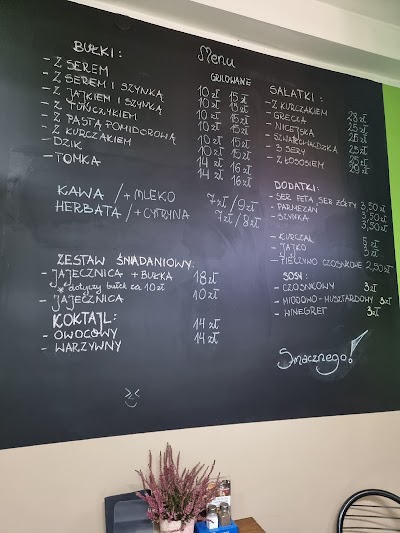 Menu
BUŁKI:
GRILOWANE
- Z SEREM 10 zł 15 zł
- Z SEREM I SZYNKĄ 10 zł 15 zł
- Z JAJKIEM I SZYNKĄ 10 zł 15 zł
- Z TUŃCZYKIEM 10 zł 15 zł
- Z PASTĄ POMIDOROWĄ 10 zł 15 zł
- Z KURCZAKIEM 10 zł 15 zł
- DZIK 14 zł 16 zł
- TOMKA 14 zł 16 zł
KAWA /+MLEKO 7 zł/9 zł
HERBATA /+CYTRYNA 7 zł/8 zł
ZESTAW ŚNIADANIOWY:
- JAJECZNICA + BUŁKA 18 zł
* dotyczy bułek za 10 zł
- JAJECZNICA 10 zł
KOKTAJL:
- OWOCOWY 14 zł
- WARZYWNY 14 zł
SAŁATKI:
- Z KURCZAKIEM
- GRECKA 23 zł
- NICEJSKA 25 zł
- SZWARCWALDZKA 25 zł
- 3 SERY 25 zł
- Z ŁOSOSIEM 29 zł
DODATKI:
- SER FETA, SER ŻÓŁTY 3,50 zł
- PARMEZAN 3,50 zł
- SZYNKA 3,50 zł
- KURCZAK 5 zł
- JAJKO 3 zł
- PIECZYWO CZOSNKOWE 2,50 zł
SOSY:
- CZOSNKOWY 3 zł
- MIODOWO-MUSZTARDOWY 3 zł
- WINEGRET 3 zł
Smacznego!